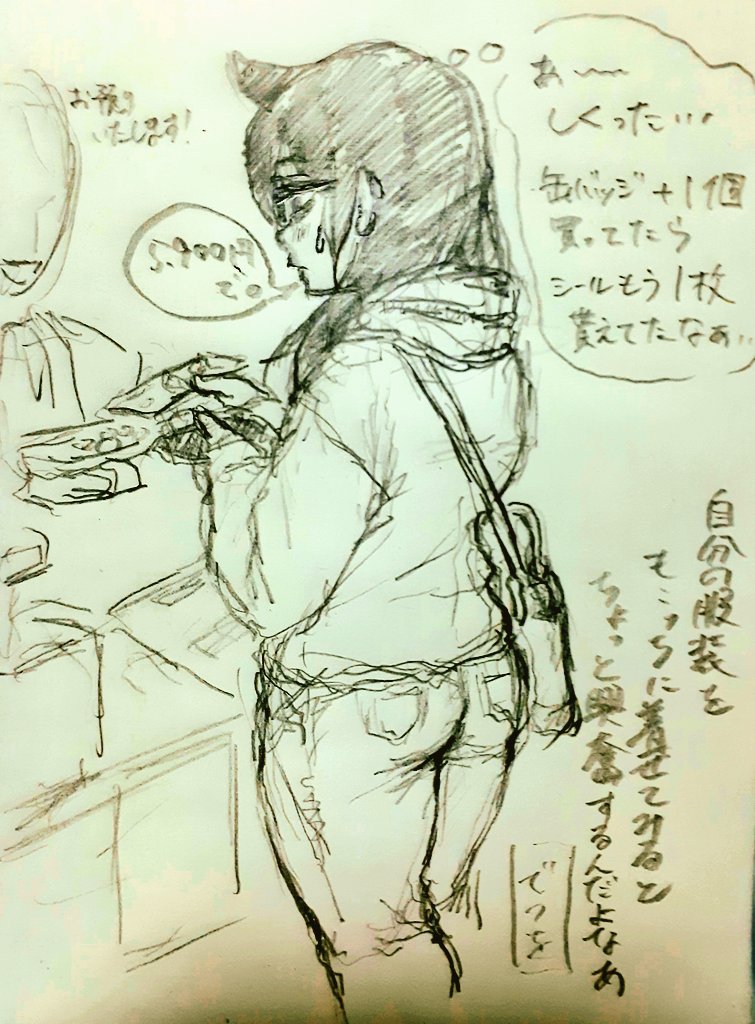 あ〜〜
しくった…
缶バッジ+1個
買ってたら
シールもう1枚
貰えてたなぁ…
お預り
いたします!
5,900円
で。
自分の服装を
もこっちに着せてみると
ちょっと興奮するんだよなあ
でつを